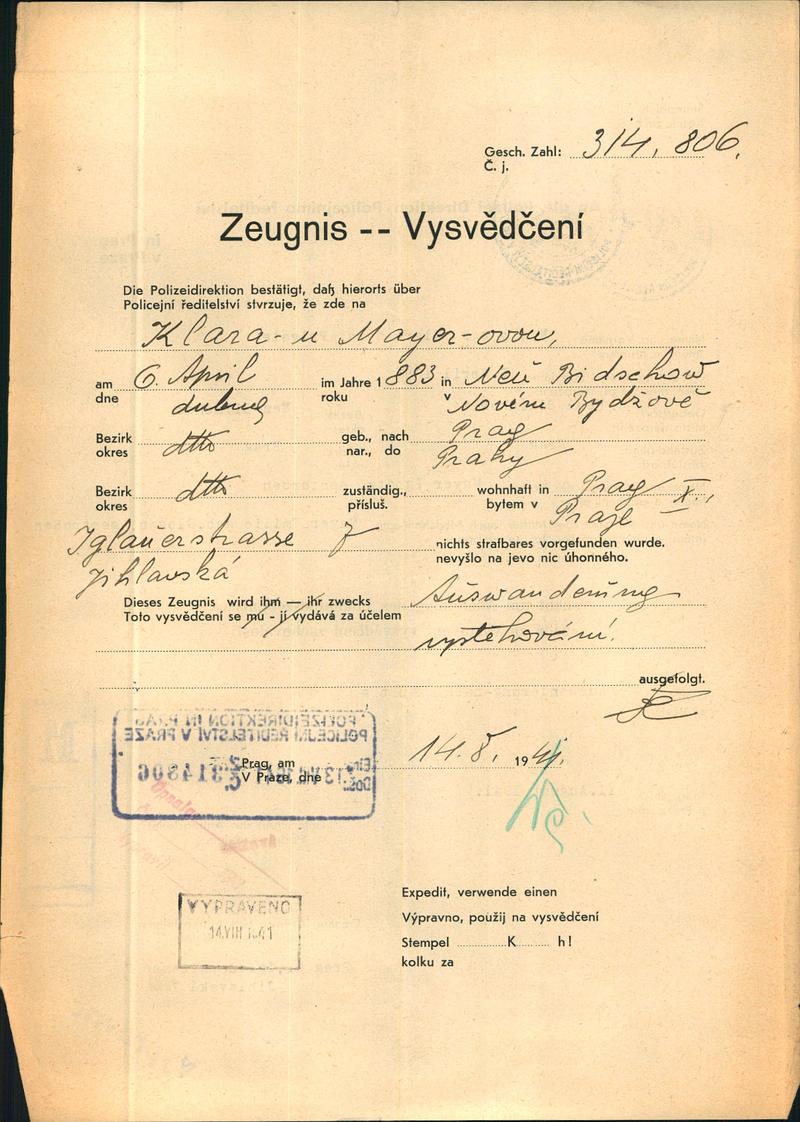 Gesch. Zahl: 314.806.
Č. j.
Zeugnis -- Vysvědčení
Die Polizeidirektion bestätigt, daß hierorts über
Policejní ředitelství stvrzuje, že zde na
Klara-u Mayer-ovou,
am 6. April im Jahre 1883 in Neu Bidschow
dne dubna roku v Novém Bydžově
Bezirk dtto geb., nach Prag
okres nar., do Prahy
Bezirk dtto zuständig., wohnhaft in Prag X.,
okres přísluš. bytem v Praze
Iglauerstrasse 7 nichts strafbares vorgefunden wurde.
Jihlavská nevyšlo na jevo nic úhonného.
Dieses Zeugnis wird ihm — ihr zwecks Auswanderung
Toto vysvědčení se mu - jí vydává za účelem
vystěhování.
ausgefolgt.
POLIZEIDIREKTION IN PRAG
POLICEJNÍ ŘEDITELSTVÍ V PRAZE
314806
Prag, am 14.8. 1941.
V Praze, dne
VYPRAVENO
14.VIII 1941
Expedit, verwende einen
Výpravno, použij na vysvědčení
Stempel K h!
kolku za